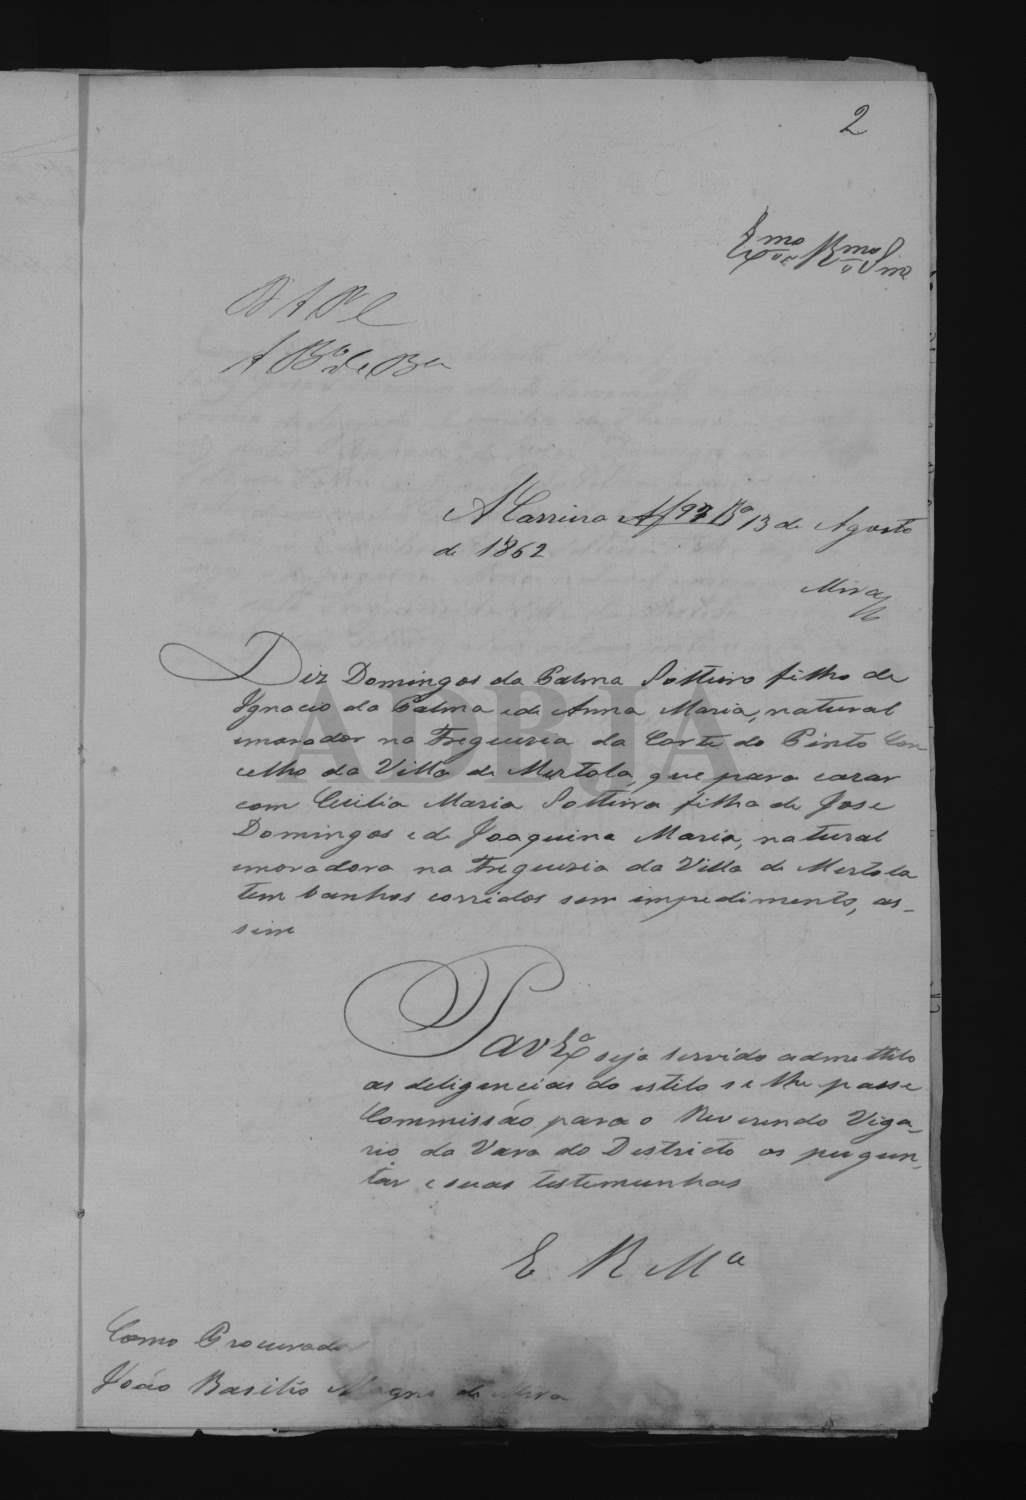 2
Exmo e Rmo Snr
D A P e
A Bra de Ba
A Carreira Af 97 Ba 13 de Agosto
de 1862
Mira
Diz Domingos da Palma Solteiro filho de
Ignacio da Palma e de Anna Maria, natural
emorador na Freguezia da Corte do Pinto Con
celho da Villa de Mertola, que para cazar
com Cecilia Maria Solteira filha de Jose
Domingos e de Joaquina Maria, natural
emoradora na Freguezia da Villa de Mertola
tem banhos corridos sem impedimento, as-
sim
P a V Exa seja servido admettilo
as deligencias do estilo se lhe passe
Commissão para o Reverendo Viga-
rio da Vara do Districto os pergun-
tar e suas testemunhas
E R Mce
Como Procurador
João Basilio Magno de Mira
ADBJA